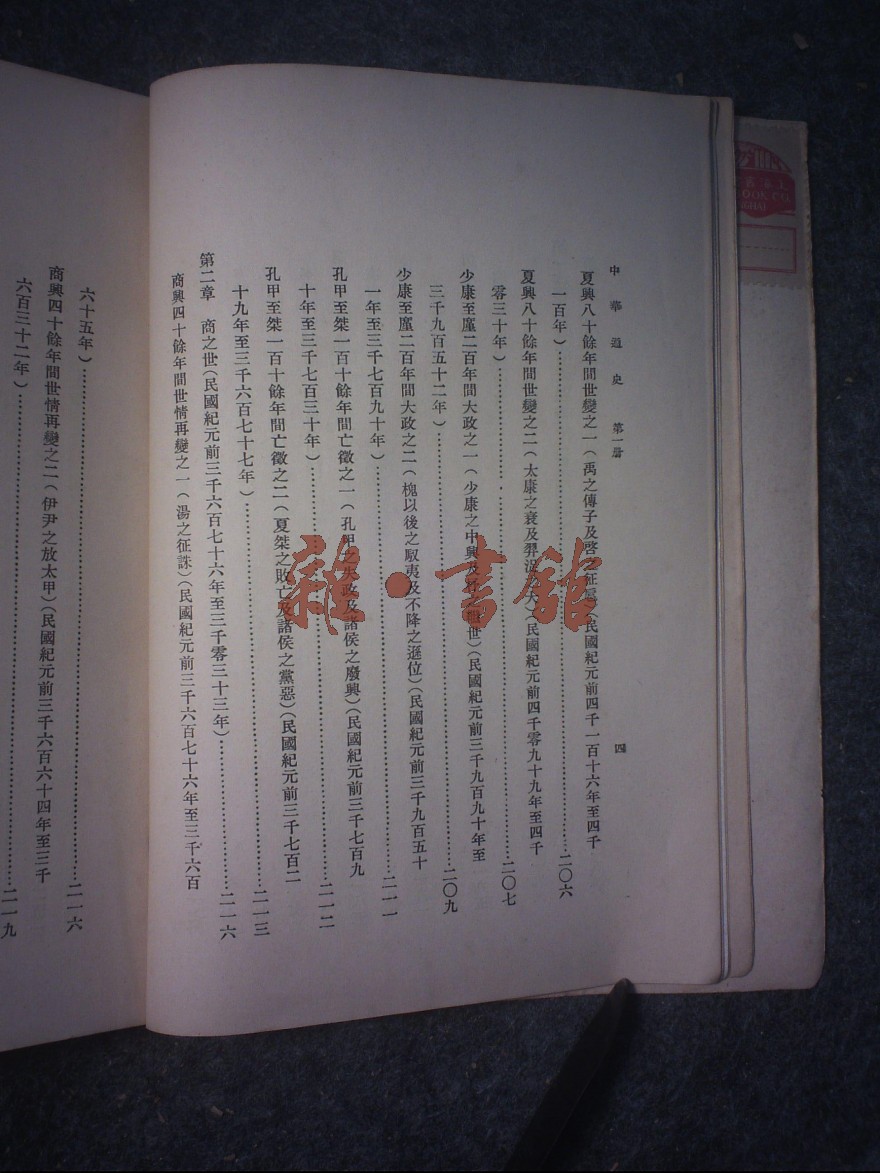 中華通史 第一册 四
夏興八十餘年間世變之一(禹之傳子及啓之征扈)(民國紀元前四千一百十六年至四千
一百年)……二〇六
夏興八十餘年間世變之二(太康之衰及羿浞之)(民國紀元前四千零九十九年至四千
零三十年)……二〇七
少康至廑二百年間大政之一(少康之中興及之世)(民國紀元前三千九百九十年至
三千九百五十二年)……二〇九
少康至廑二百年間大政之二(槐以後之馭夷及不降之遜位)(民國紀元前三千九百五十
一年至三千七百九十年)……二一一
孔甲至桀一百十餘年間亡徵之一(孔甲之失政及諸侯之廢興)(民國紀元前三千七百九
十年至三千七百三十年)……二一二
孔甲至桀一百十餘年間亡徵之二(夏桀之敗亡及諸侯之黨惡)(民國紀元前三千七百二
十九年至三千六百七十七年)……二一三
第二章 商之世(民國紀元前三千六百七十六年至三千零三十三年)……二一六
商興四十餘年間世情再變之一(湯之征誅)(民國紀元前三千六百七十六年至三千六百
六十五年)……二一六
商興四十餘年間世情再變之二(伊尹之放太甲)(民國紀元前三千六百六十四年至三千
六百三十二年)……二一九
雜·書館